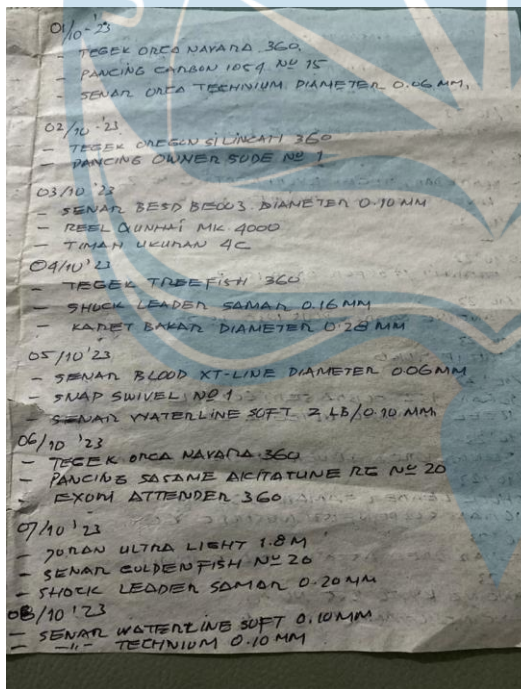 01/10-23
- TEGEK ORCA NAVARA 360.
- PANCING CARBON 1054 Nº 15
- SENAR ORCA TECHNIUM DIAMETER 0.06 MM.
02/10-'23
- TEGEK OREGON SILINCAH 360
- PANCING OWNER SODE Nº 1
03/10 '23
- SENAR BESD DIAMETER 0.10 MM
- REEL QUNHAI MK 4000
- TIMAH UKURAN 4C
04/10'23
- TEGEK TREEFISH 360
- SHOCK LEADER SAMAR 0.16 MM
- KARET BAKAR DIAMETER 0.28 MM
05/10'23
- SENAR BLOOD XT-LINE DIAMETER 0.06 MM
- SNAP SWIVEL Nº 1
- SENAR WATERLINE SOFT 2 LB/0.10 MM
06/10 '23
- TEGEK ORCA NAVARA 360
- PANCING SASAME AKITATUNE RG Nº 20
- EXORI ATTENDER 360
07/10'23
- JORAN ULTRA LIGHT 1.8 M
- SENAR GOLDENFISH Nº 20
- SHOCK LEADER SAMAR 0.20 MM
08/10 '23
- SENAR WATERLINE SOFT 0.10 MM
- -"- TECHNIUM 0.10 MM